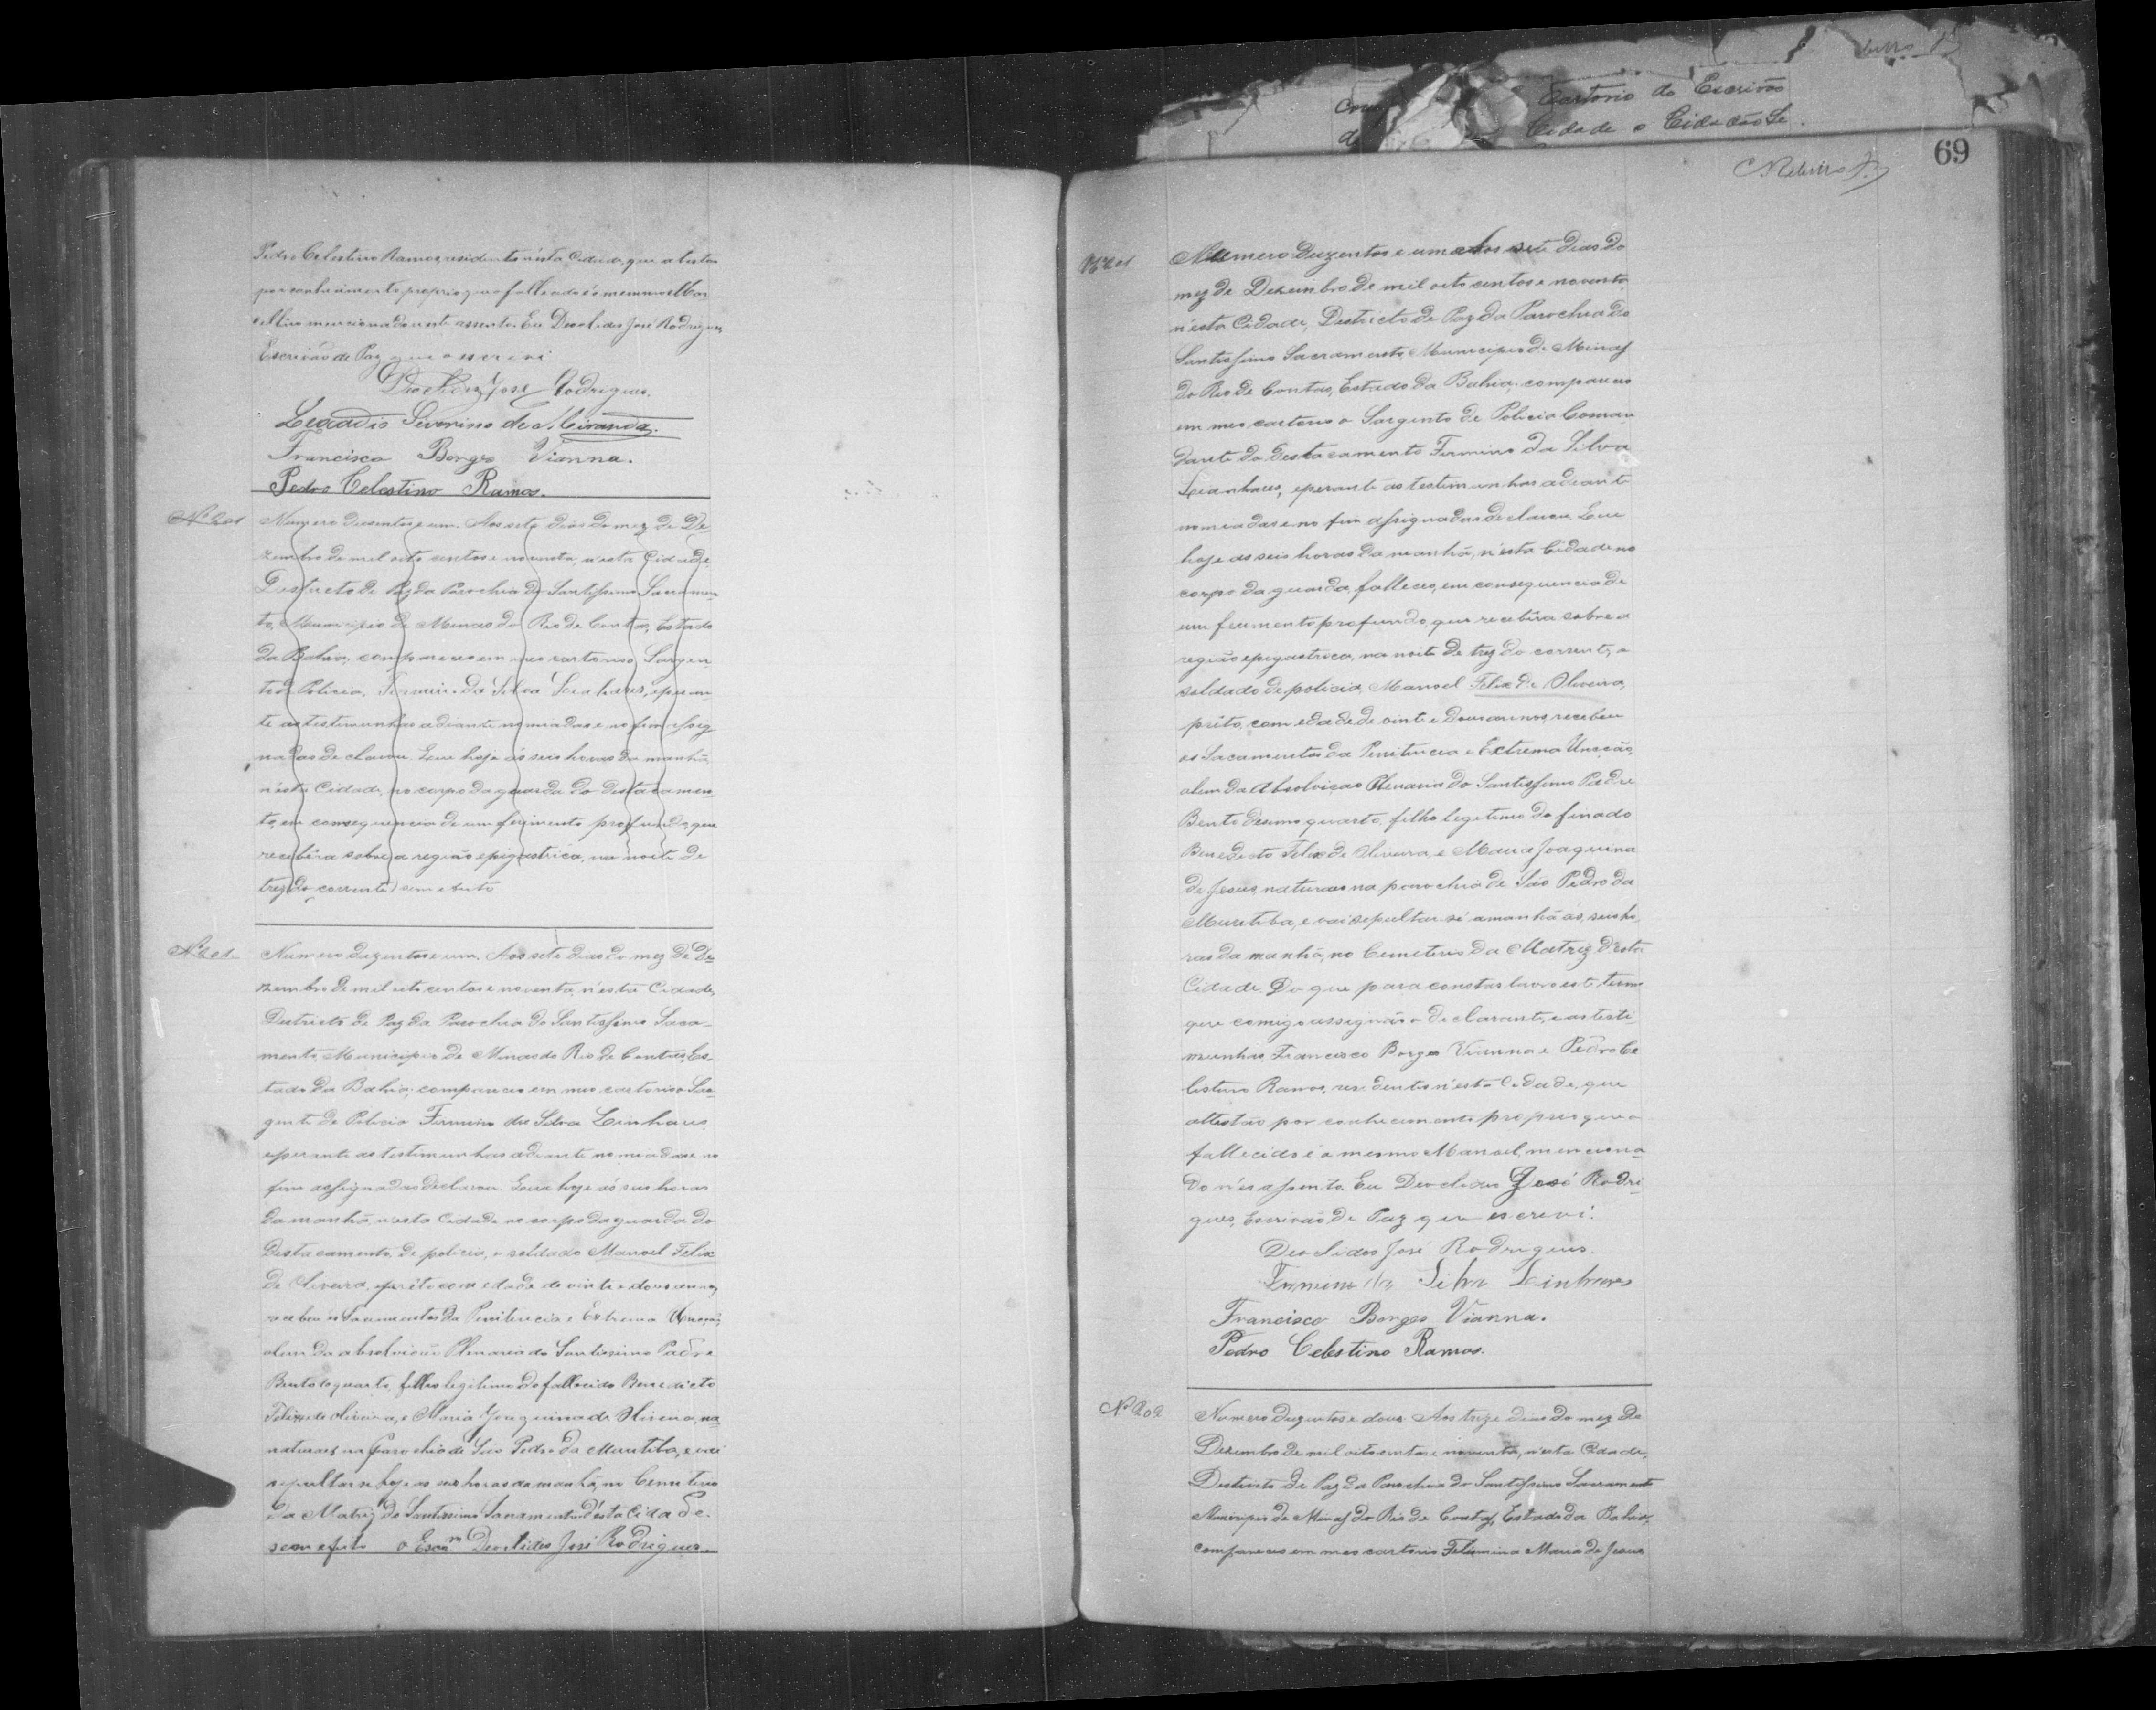 Pedro Celestino Ramos, residente n'esta Cidade, que attestão
por conhecimento proprio, que o fallecido é o mesmo Mar
cellino mencionado neste assento. Eu Deoclides José Rodrigues
Escrivão de Paz que o escrevi
Deoclides José Rodrigues.
Leocadio Severino de Miranda.
Francisco Borges Vianna.
Pedro Celestino Ramos.
Nº 201
Numero duzentos e um. Aos sete dias do mez de De
zembro de mil oito centos e noventa, n'esta Cidade,
Districto de Paz da Parochia do Santissimo Sacramen
to, Municipio de Minas do Rio de Contas, Estado
da Bahia, compareceo em meo cartorio o Sargen
to de Policia, Firmino da Silva Linhares, e peran
te as testimunhas adiante nomeadas e no fim assig
nadas declarou: Que hoje ás seis horas da manhã,
n'esta Cidade, no corpo da guarda do destacamen
to, em consequencia de um ferimento profundo, que
recebêra sobre a região epigastrica, na noite de
trez do corrente) sem efeito
Nº 201
Numero duzentos e um. Aos sete dias do mez de De
zembro de mil oito centos e noventa, n'esta Cidade,
Districto de Paz da Parochia do Santissimo Sacra-
mento, Municipio de Minas do Rio de Contas, Es-
tado da Bahia; compareceo em meo cartorio o Sar
gento de Policia Firmino da Silva Linhares
e perante as testimunhas adiante nomeadas e no
fim assignadas declarou: Que hoje ás seis horas
da manhã, n'esta Cidade no corpo da guarda do
Destacamento de policia, o soldado Manoel Felix
de Oliveira, prêto com edade de vinte e dous annos,
recebeu os Sacramentos da Penitencia e Extrema Uncção,
alem da absolvição Plenaria do Santissimo Padre
Bento quarto, filho legitimo do fallecido Benedicto
Felix de Oliveira, e Maria Joaquina de Oliveira, na
naturaes na parochia de São Pedro da Muritiba, e vai
sepultar-se hoje as seis horas da manhã, no Cemiterio
da Matriz do Santissimo Sacramento d'esta Cidade.
sem efeito o Escrm Deoclides José Rodrigues.
Cartorio do Escrivão
Cidade o Cidadão Le
69
Ribeiro Jr.
Nº 201
Numero Duzentos e um. Aos sete dias do
mez de Dezembro de mil oito centos e noventa
n'esta Cidade, Districto de Paz da Parochia do
Santissimo Sacramento, Municipio de Minas
do Rio de Contas, Estado da Bahia, compareceo
em meo cartorio o Sargento de Policia Coman
dante do destacamento Firmino da Silva
Linhares, e perante as testimunhas adiante
nomeadas e no fim assignadas declarou: Que
hoje as seis horas da manhã, n'esta Cidade no
corpo da guarda, falleceo, em consequencia de
um ferimento profundo, que recebêra sobre a
região epigastrica, na noite de trez do corrente, o
soldado de policia, Manoel Felix de Oliveira,
prêto, com edade de vinte e dous annos, recebeu
os Sacramentos da Penitencia e Extrema Uncção,
alem da Absolvição Plenaria do Santissimo Padre
Bento decimo quarto, filho legitimo do finado
Benedicto Felix de Oliveira, e Maria Joaquina
de Jesus, naturaes na parochia de São Pedro da
Muritiba, e vai sepultar-se amanhã ás seis ho
ras da manhã, no Cemiterio da Matriz d'esta
Cidade. Do que para constar lavro este termo
que comigo assignão o declarante, e as testi
munhas Francisco Borges Vianna e Pedro Ce
lestino Ramos, residentes n'esta Cidade, que
attestão por conhecimento proprio que o
fallecido é o mesmo Manoel, menciona
do n'es assento. Eu Deoclides José Rodri
gues, Escrivão de Paz que escrevi.
Deoclides José Rodrigues.
Firmino da Silva Linhares
Francisco Borges Vianna.
Pedro Celestino Ramos.
Nº 202
Numero duzentos e dous. Aos treze dias do mez de
Dezembro de mil oito centos e noventa, n'esta Cidade,
Districto de Paz da Parochia do Santissimo Sacramento
Municipio de Minas do Rio de Contas, Estado da Bahia,
compareceo em meo cartorio Felismina Maria de Jesus